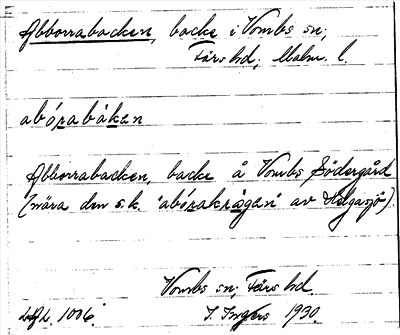 Abborrabacken, backe i Vombs sn,
Färs hd, Malm. l.
abórabákan
Abborrabacken, backe å Vombs Södergård
(nära den s.k. "abórakrågan" av Helgasjö).
Vombs sn, Färs hd.
1006. I. Ingers 1930